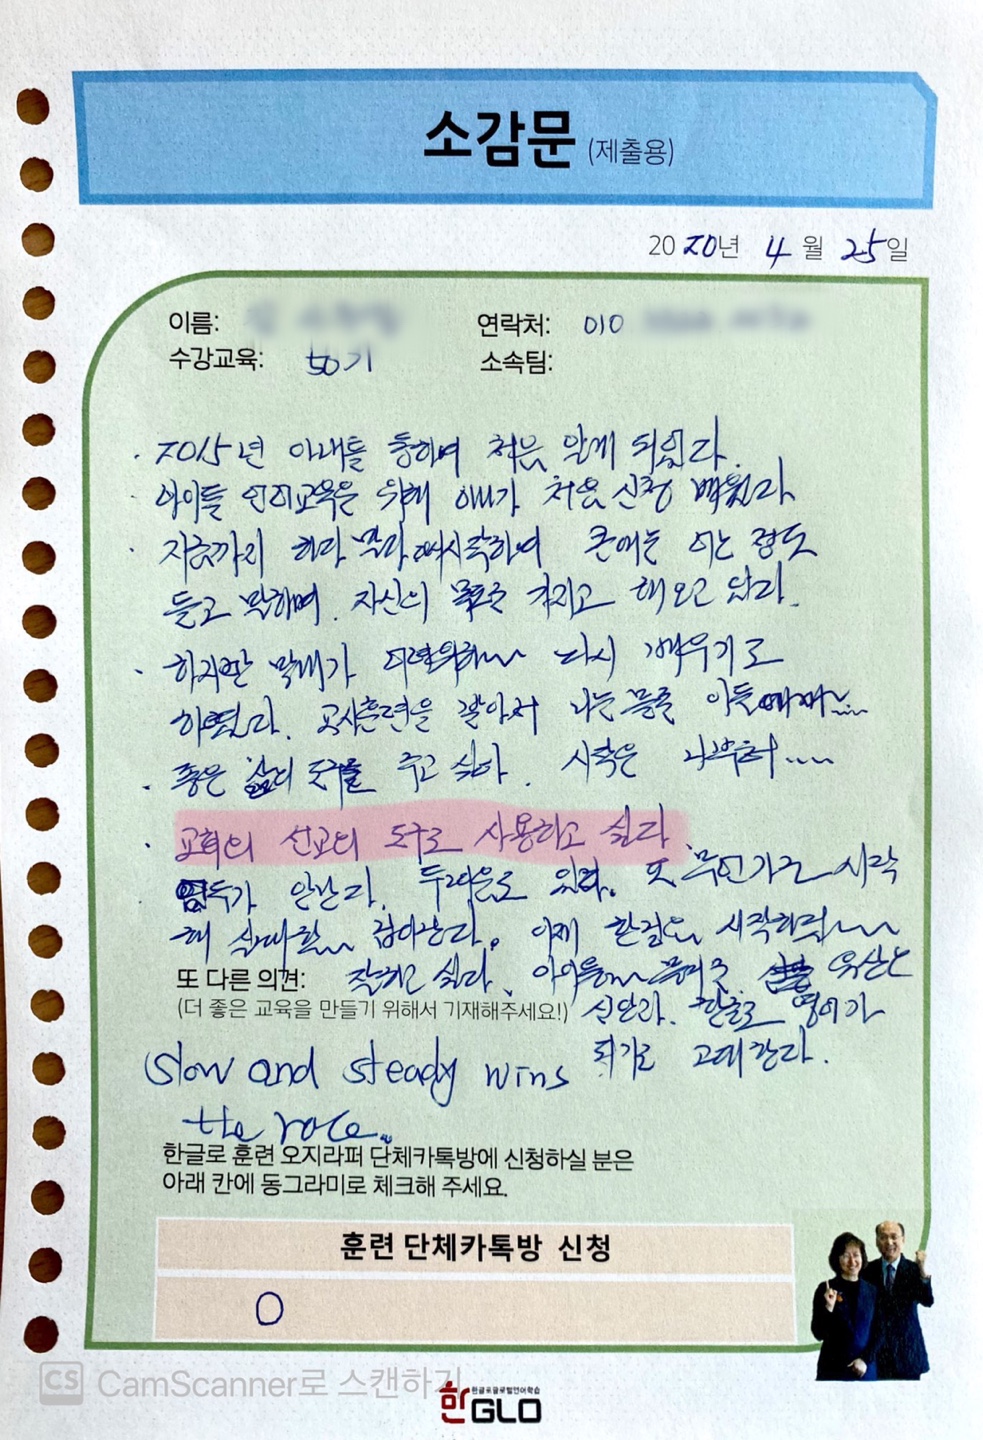 소감문 (제출용)
2020년 4월 25일
이름:
연락처: 010
수강교육: 50기
소속팀:
· 2015년 아내를 통하여 처음 알게 되었다.
· 아이들 언어교육을 위해 아내가 처음 신청 배웠다
· 지금까지 하다 말다 시작하여 큰애는 어느 정도
듣고 말하며. 자신의 목표를 가지고 해오고 있다.
· 하지만 막내가 다시 배우기로
하였다. 교사훈련을 받아서 나는 물론 이들에게....
· 좋은 삶의 도구를 주고 싶다. 시작은 나부터....
· 교회의 선교의 도구로 사용하고 싶다.
· 엄두가 안난다. 두려움도 있다. 또 무언가를 시작
해 이제 한걸음 시작하려
또 다른 의견: 잘하고 싶다. 아이들 유산은
(더 좋은 교육을 만들기 위해서 기재해주세요!) 신앙과. 한글로 영어가
Slow and steady wins 되기로 고대한다.
the race.
한글로 훈련 오지라퍼 단체카톡방에 신청하실 분은
아래 칸에 동그라미로 체크해 주세요.
훈련 단체카톡방 신청
O
CS CamScanner로 스캔하기
한글로글로벌언어학습
한GLO